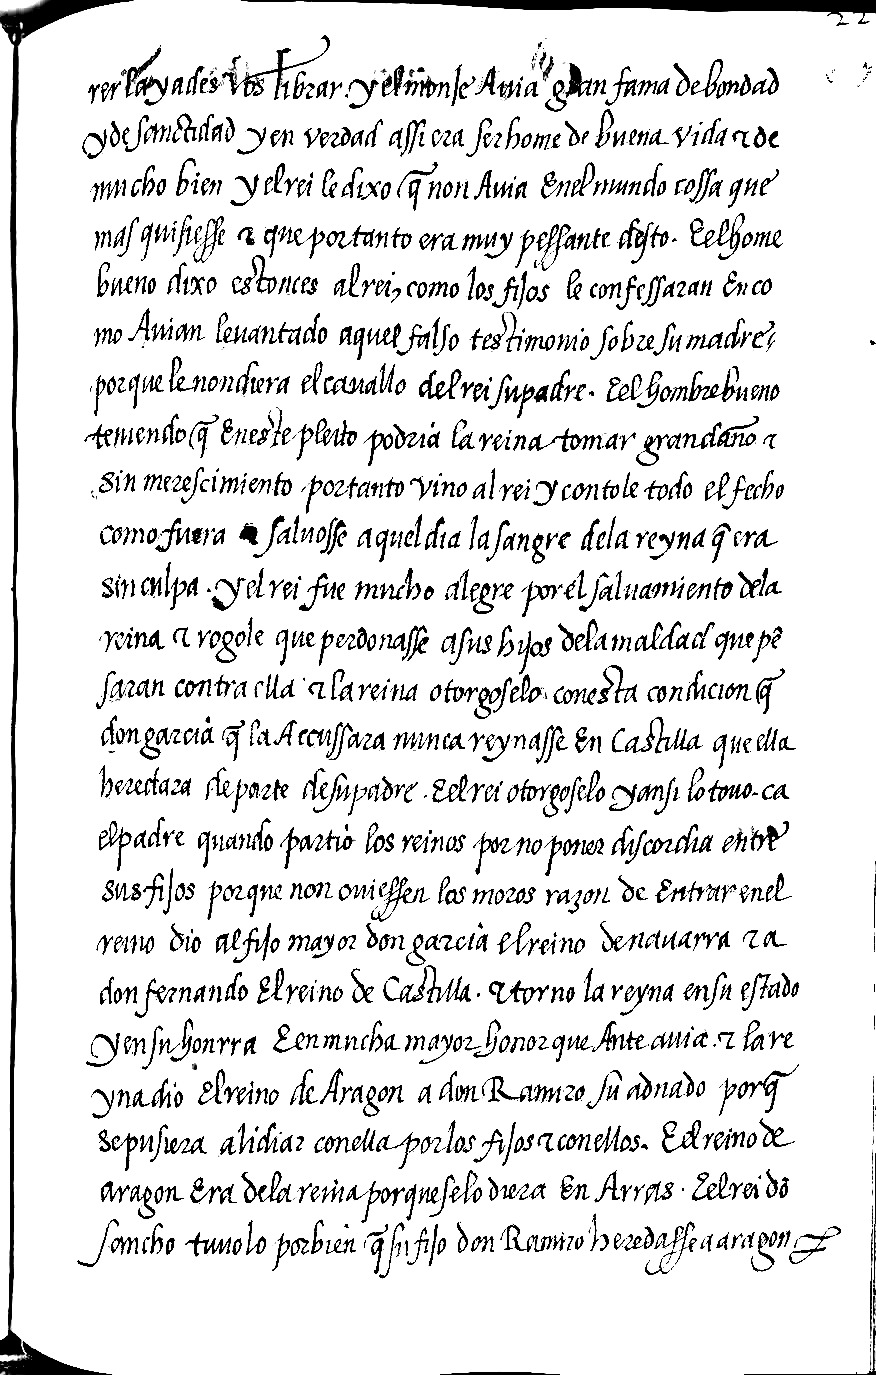 22
rer la yades los librar. y el monje Auia gran fama de bondad
y de sanctidad y en verdad assi era ser home de buena vida τ de
mucho bien y el rei le dixo q̃ non Auia Enel mundo cossa que
mas quisiesse τ que por tanto era muy pessante desto. E el home
bueno dixo estonces al rei, como los fijos le confessaran En co
mo Auian leuantado aquel falso testimonio sobre su madre,
porque le non diera el cauallo del rei su padre. E el hombre bueno
temiendo q̃ En este pleito podria la reina tomar gran daño τ
sin merescimiento por tanto vino al rei y contole todo el fecho
como fuera saluosse aquel dia la sangre dela reyna q̃ era
sin culpa. y el rei fue mucho alegre por el saluamiento dela
reina τ rogole que perdonasse a sus hijos dela maldad que pẽ
saran contra ella τ la reina otorgoselo con esta condicion q̃
don garcia q̃ la Accussara nunca reynasse En Castilla que ella
heredara de parte de su padre. E el rei otorgoselo y ansi lo touo. ca
el padre quando partio los reinos por no poner discordia entre
sus fijos porque non ouiessen los moros razon de Entrar enel
reino dio al fijo mayor don garcia el reino de nauarra τ a
don fernando El reino de Castilla. τ torno la reyna en su estado
y en su honrra E en mucha mayor honor que Ante auia. τ la re
yna dio El reino de Aragon a don Ramiro su adnado porq̃
se pusiera a lidiar con ella por los fijos τ con ellos. E el reino de
aragon Era dela reina porque selo diera En Arras. E el rei dõ
sancho tuuolo por bien q̃ su fijo don Ramiro heredasse a aragon